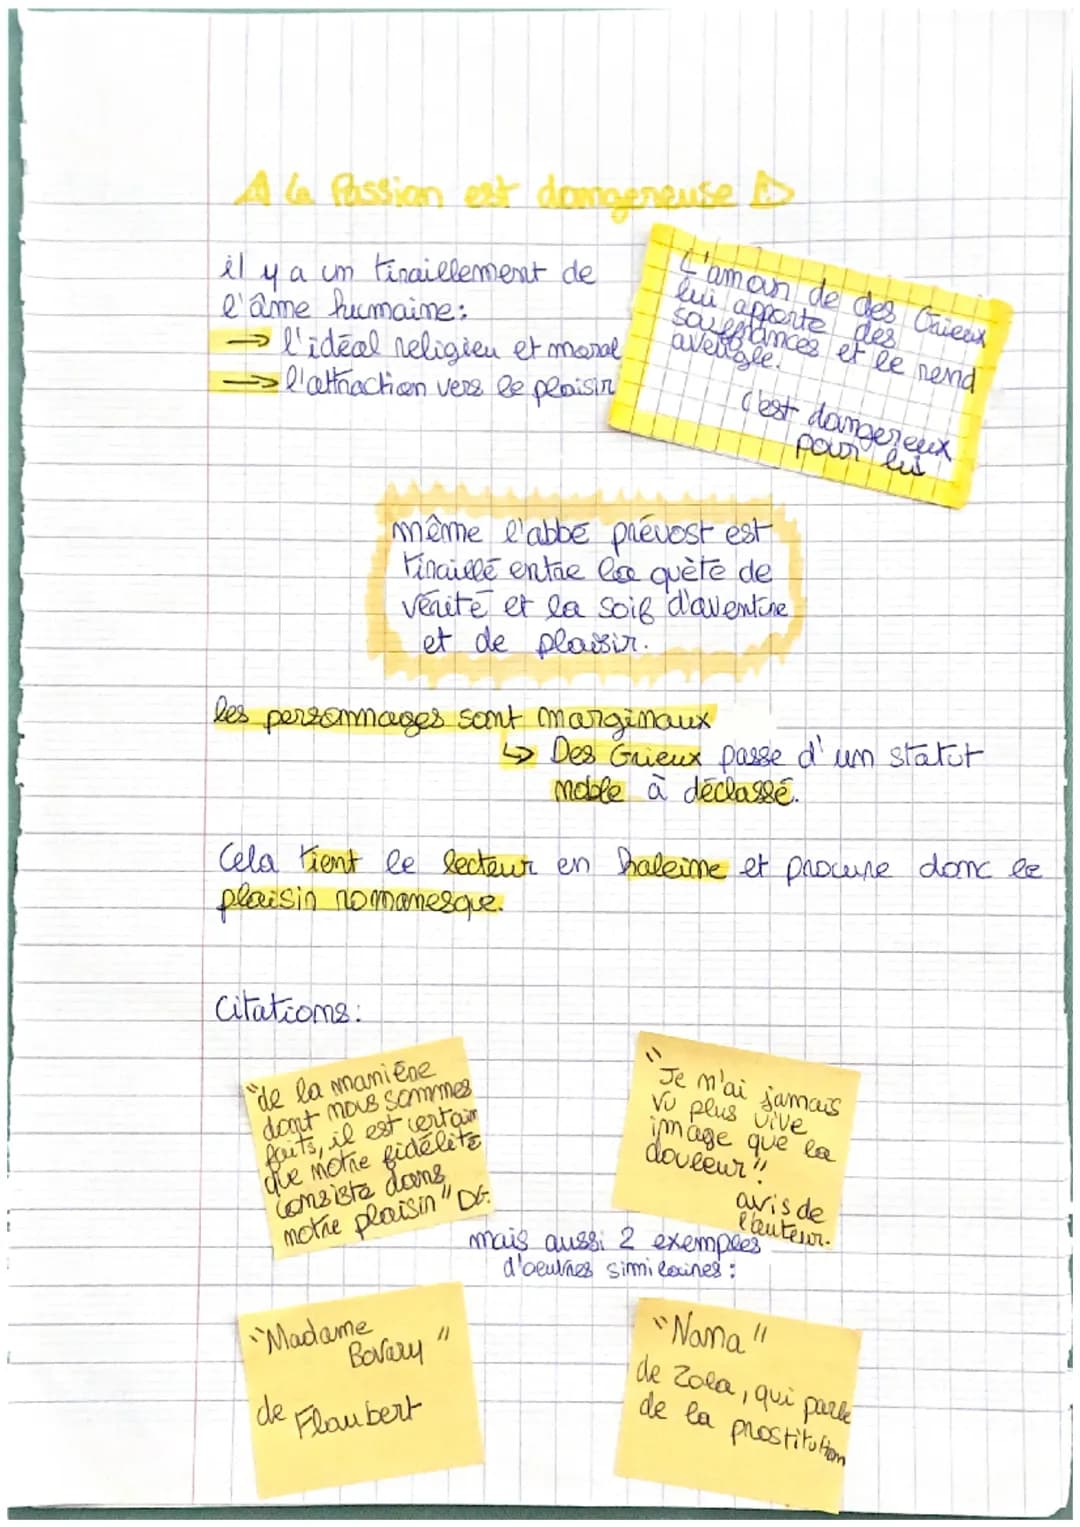 la Passion est dangereuse
il y a un tiraillement de
l'âme humaine:
→ l'idéal religieu et moral
→ l'attraction vers le plaisir
L'amour de des Grieux
lui apporte des
souffrances et le rend
aveugle.
c'est dangereux
pour lui
même l'abbé prévost est
tiraillé entre la quète de
vérité et la soif d'aventure
et de plaisir.
les personnages sont marginaux
↳ Des Grieux passe d'un statut
noble à déclassé.
Cela tient le lecteur en haleine et procure donc le
plaisir romanesque.
Citations:
"de la manière
dont nous sommes
faits, il est certain
que notre fidélité
consiste dans
notre plaisir" DG.
"Je n'ai jamais
vu plus vive
image que la
douleur".
avis de
l'auteur.
mais aussi 2 exemples
d'oeuvres similaires:
"Madame
Bovary"
de Flaubert
"Nana"
de Zola, qui parle
de la prostitution